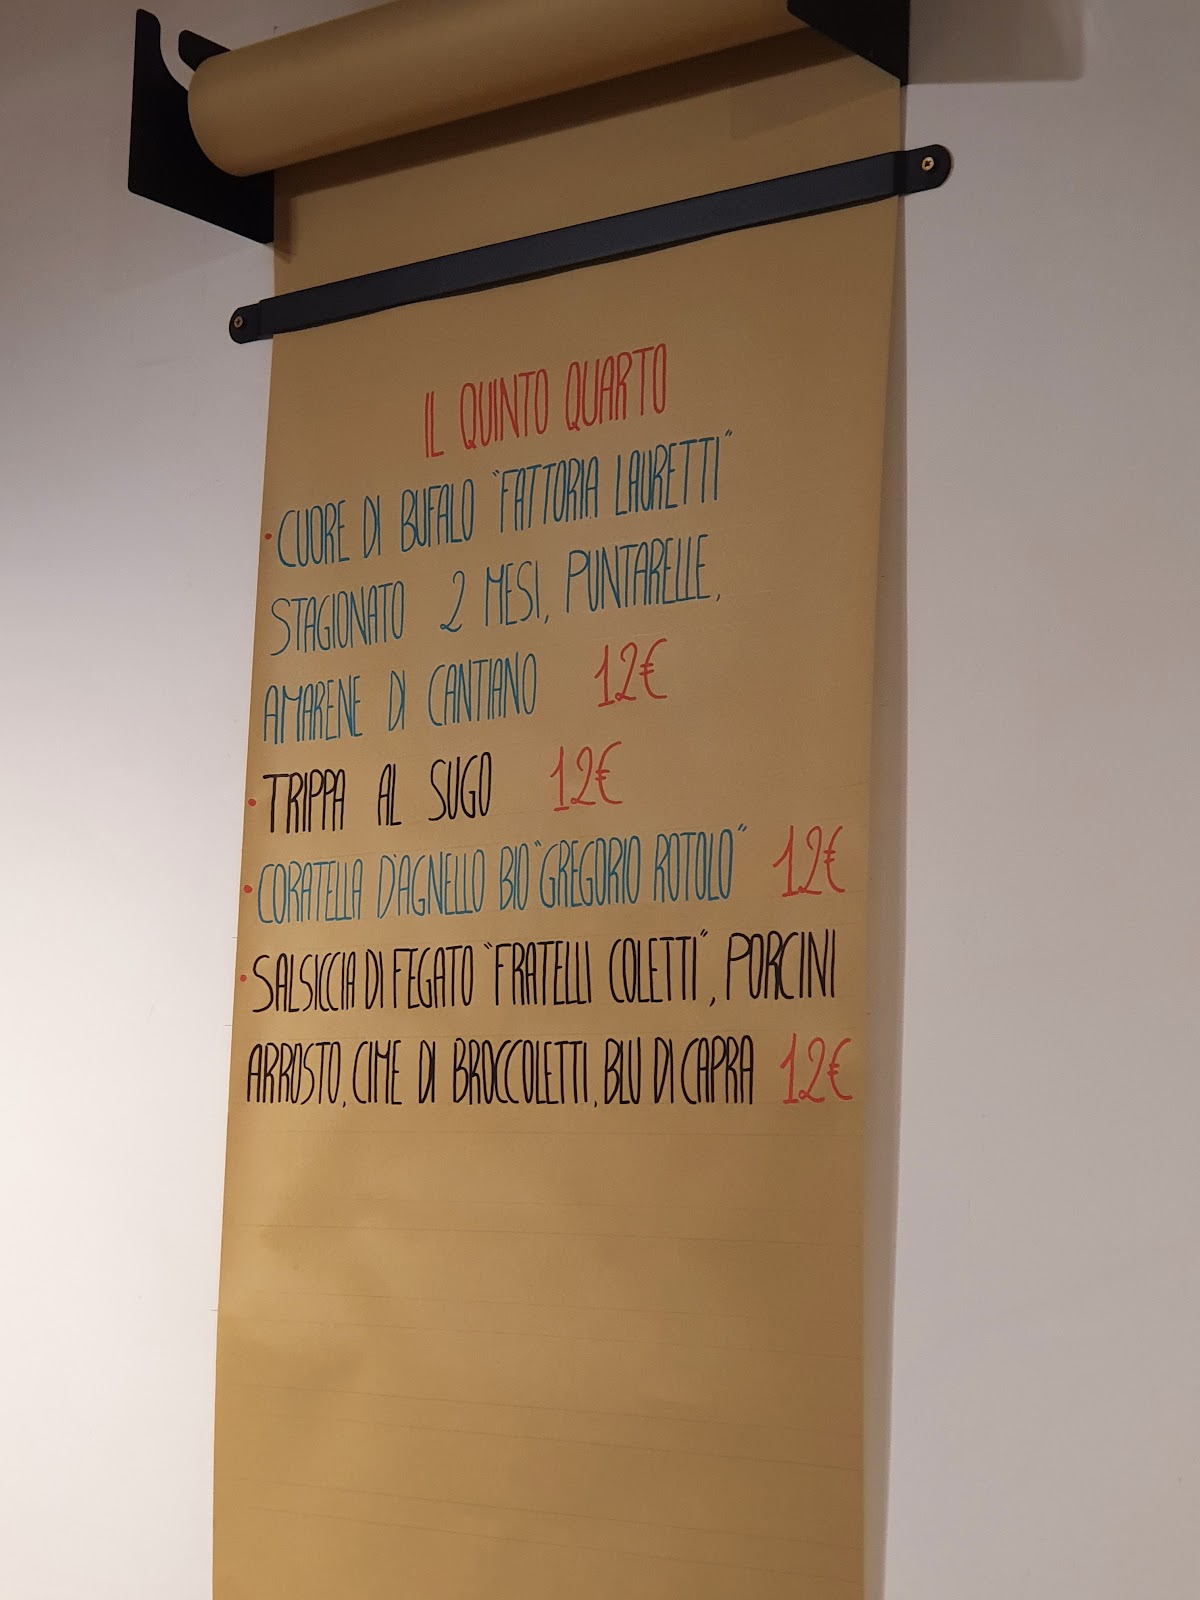 IL QUINTO QUARTO
• CUORE DI BUFALO "FATTORIA LAURETTI"
STAGIONATO 2 MESI, PUNTARELLE,
AMARENE DI CANTIANO 12€
• TRIPPA AL SUGO 12€
• CORATELLA D'AGNELLO BIO "GREGORIO ROTOLO" 12€
• SALSICCIA DI FEGATO "FRATELLI COLETTI", PORCINI
ARROSTO, CIME DI BROCCOLETTI, BLU DI CAPRA 12€